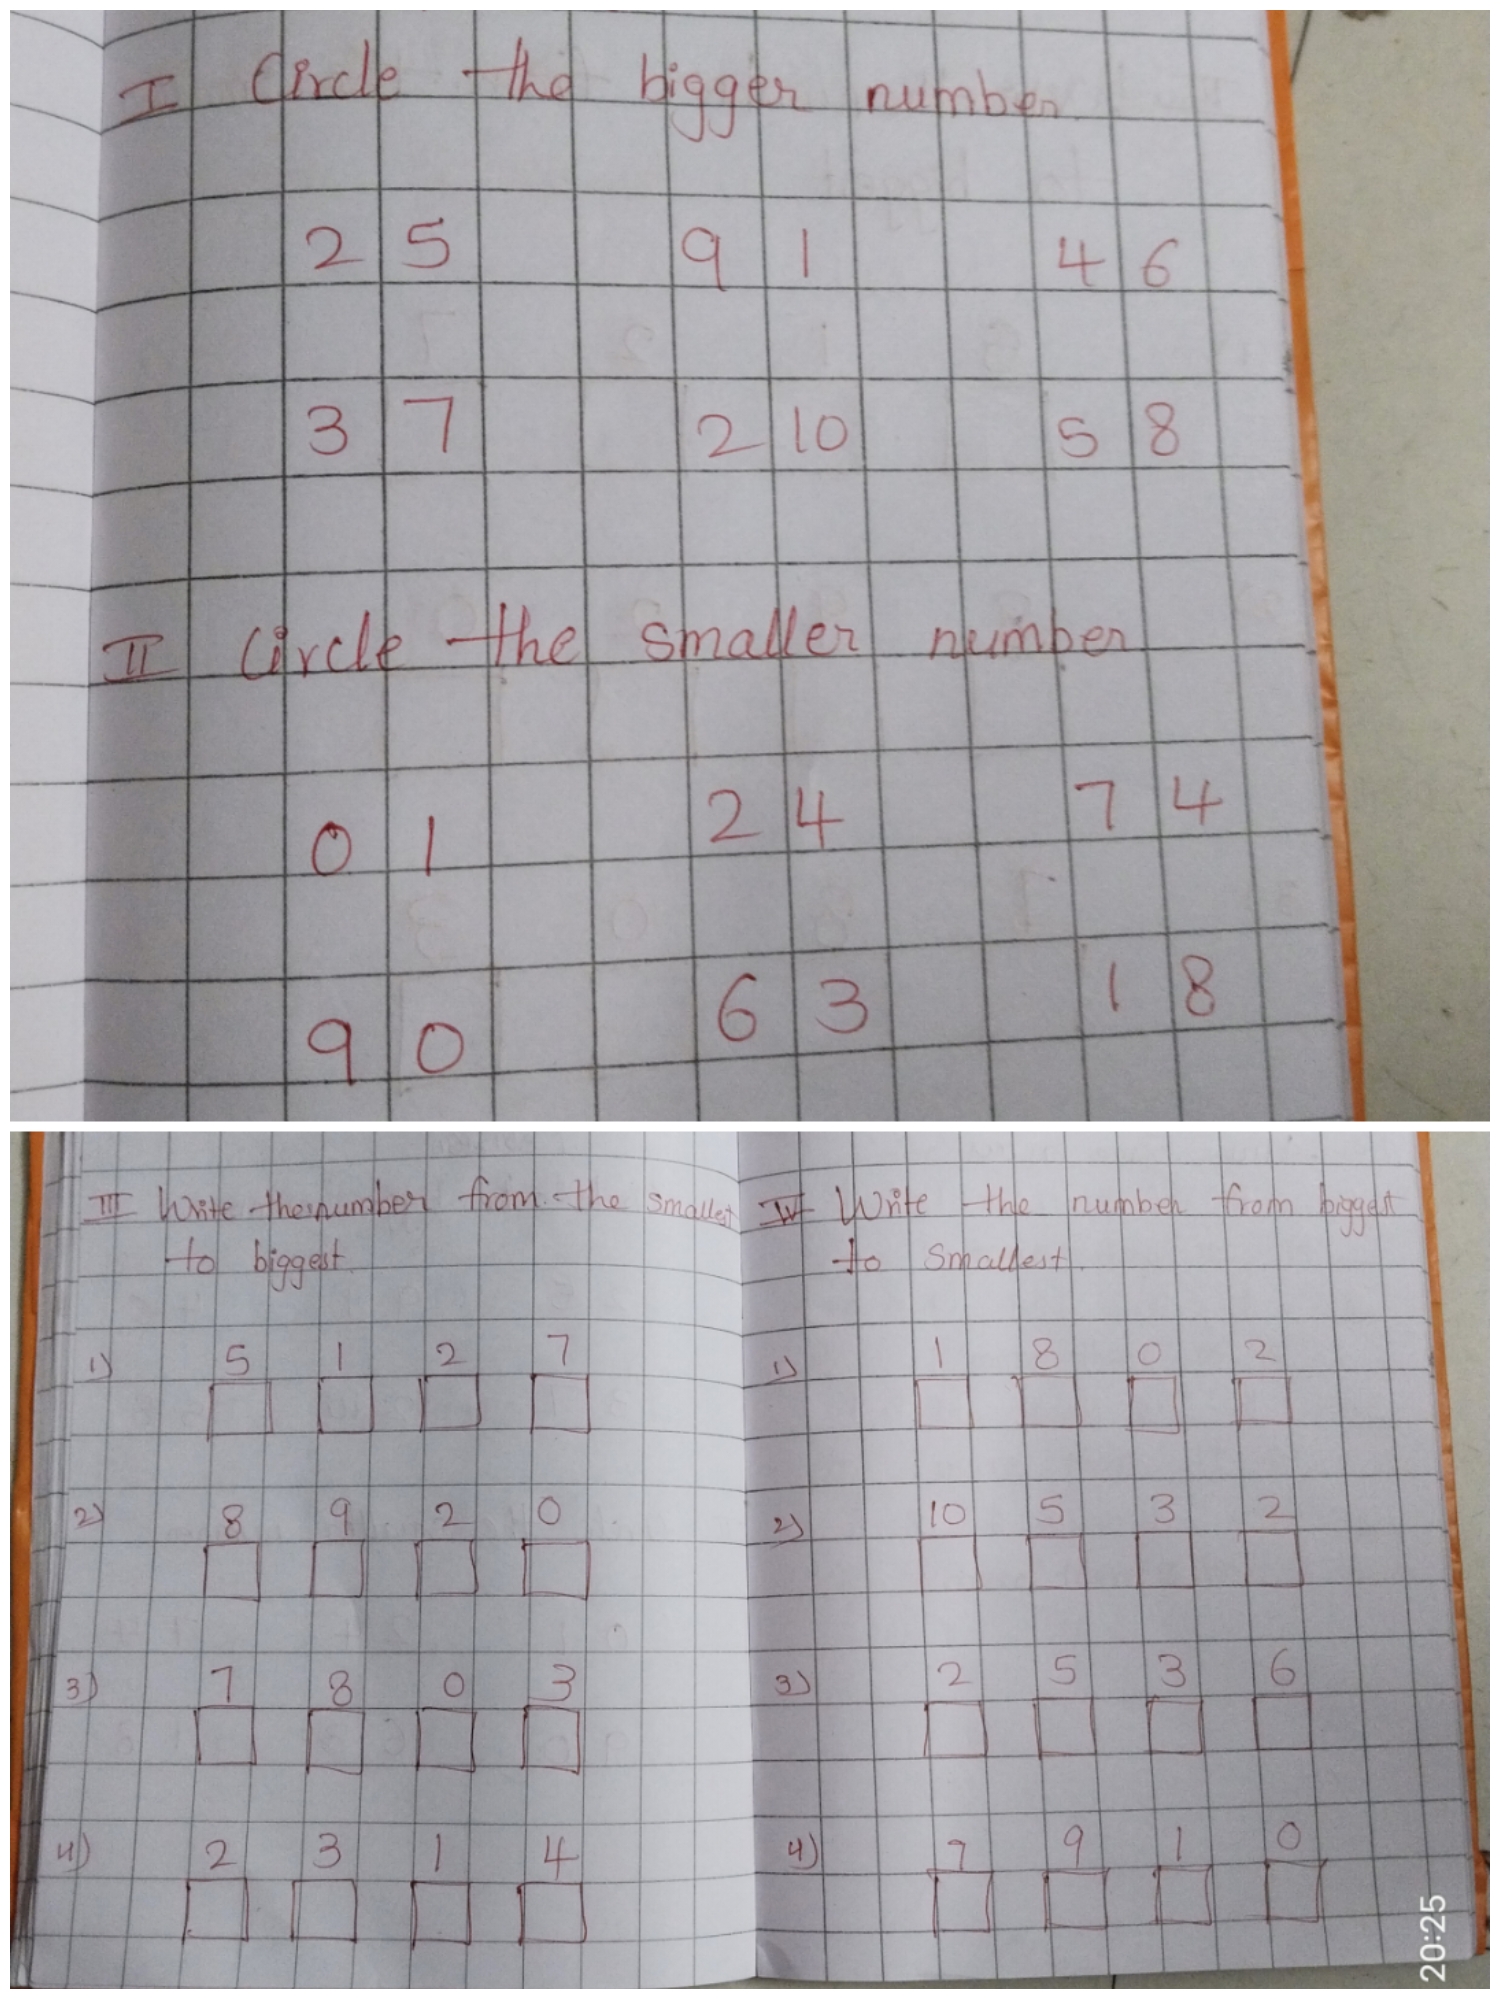 I Circle the bigger number
2 5 9 1 4 6
3 7 2 10 5 8
II Circle the smaller number
0 1 2 4 7 4
9 0 6 3 1 8
III Write the number from the smallest
to biggest.
1) 5 1 2 7
2) 8 9 2 0
3) 7 8 0 3
4) 2 3 1 4
IV Write the number from biggest
to Smallest.
1) 1 8 0 2
2) 10 5 3 2
3) 2 5 3 6
4) 7 9 1 0
20:25